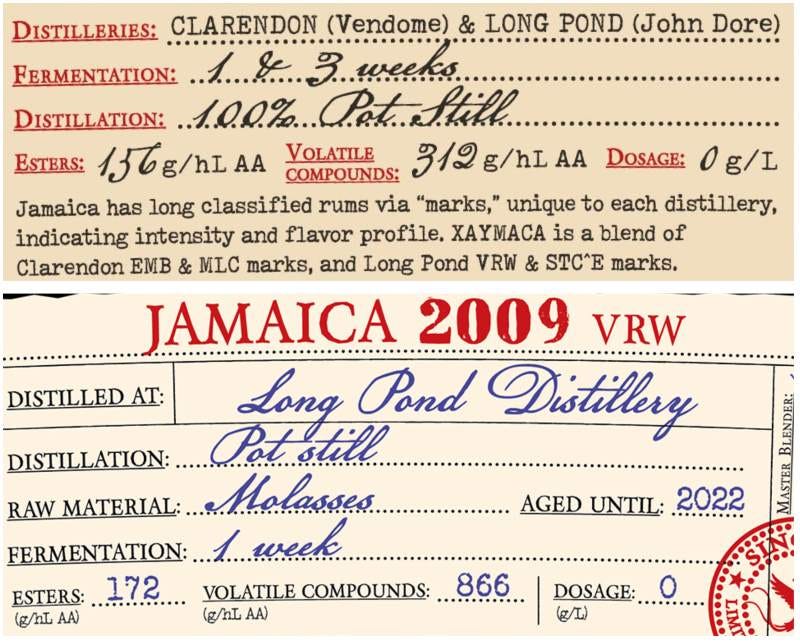 DISTILLERIES: CLARENDON (Vendome) & LONG POND (John Dore)
FERMENTATION: 1 & 3 weeks
DISTILLATION: 100% Pot Still
ESTERS: 156 g/hL AA VOLATILE COMPOUNDS: 312 g/hL AA DOSAGE: 0 g/L
Jamaica has long classified rums via “marks,” unique to each distillery,
indicating intensity and flavor profile. XAYMACA is a blend of
Clarendon EMB & MLC marks, and Long Pond VRW & STC^E marks.
JAMAICA 2009 VRW
DISTILLED AT: Long Pond Distillery
DISTILLATION: Pot still
RAW MATERIAL: Molasses AGED UNTIL: 2022
FERMENTATION: 1 week
ESTERS: 172 VOLATILE COMPOUNDS: 866 DOSAGE: 0
(g/hL AA) (g/hL AA) (g/L)
MASTER BLENDER: